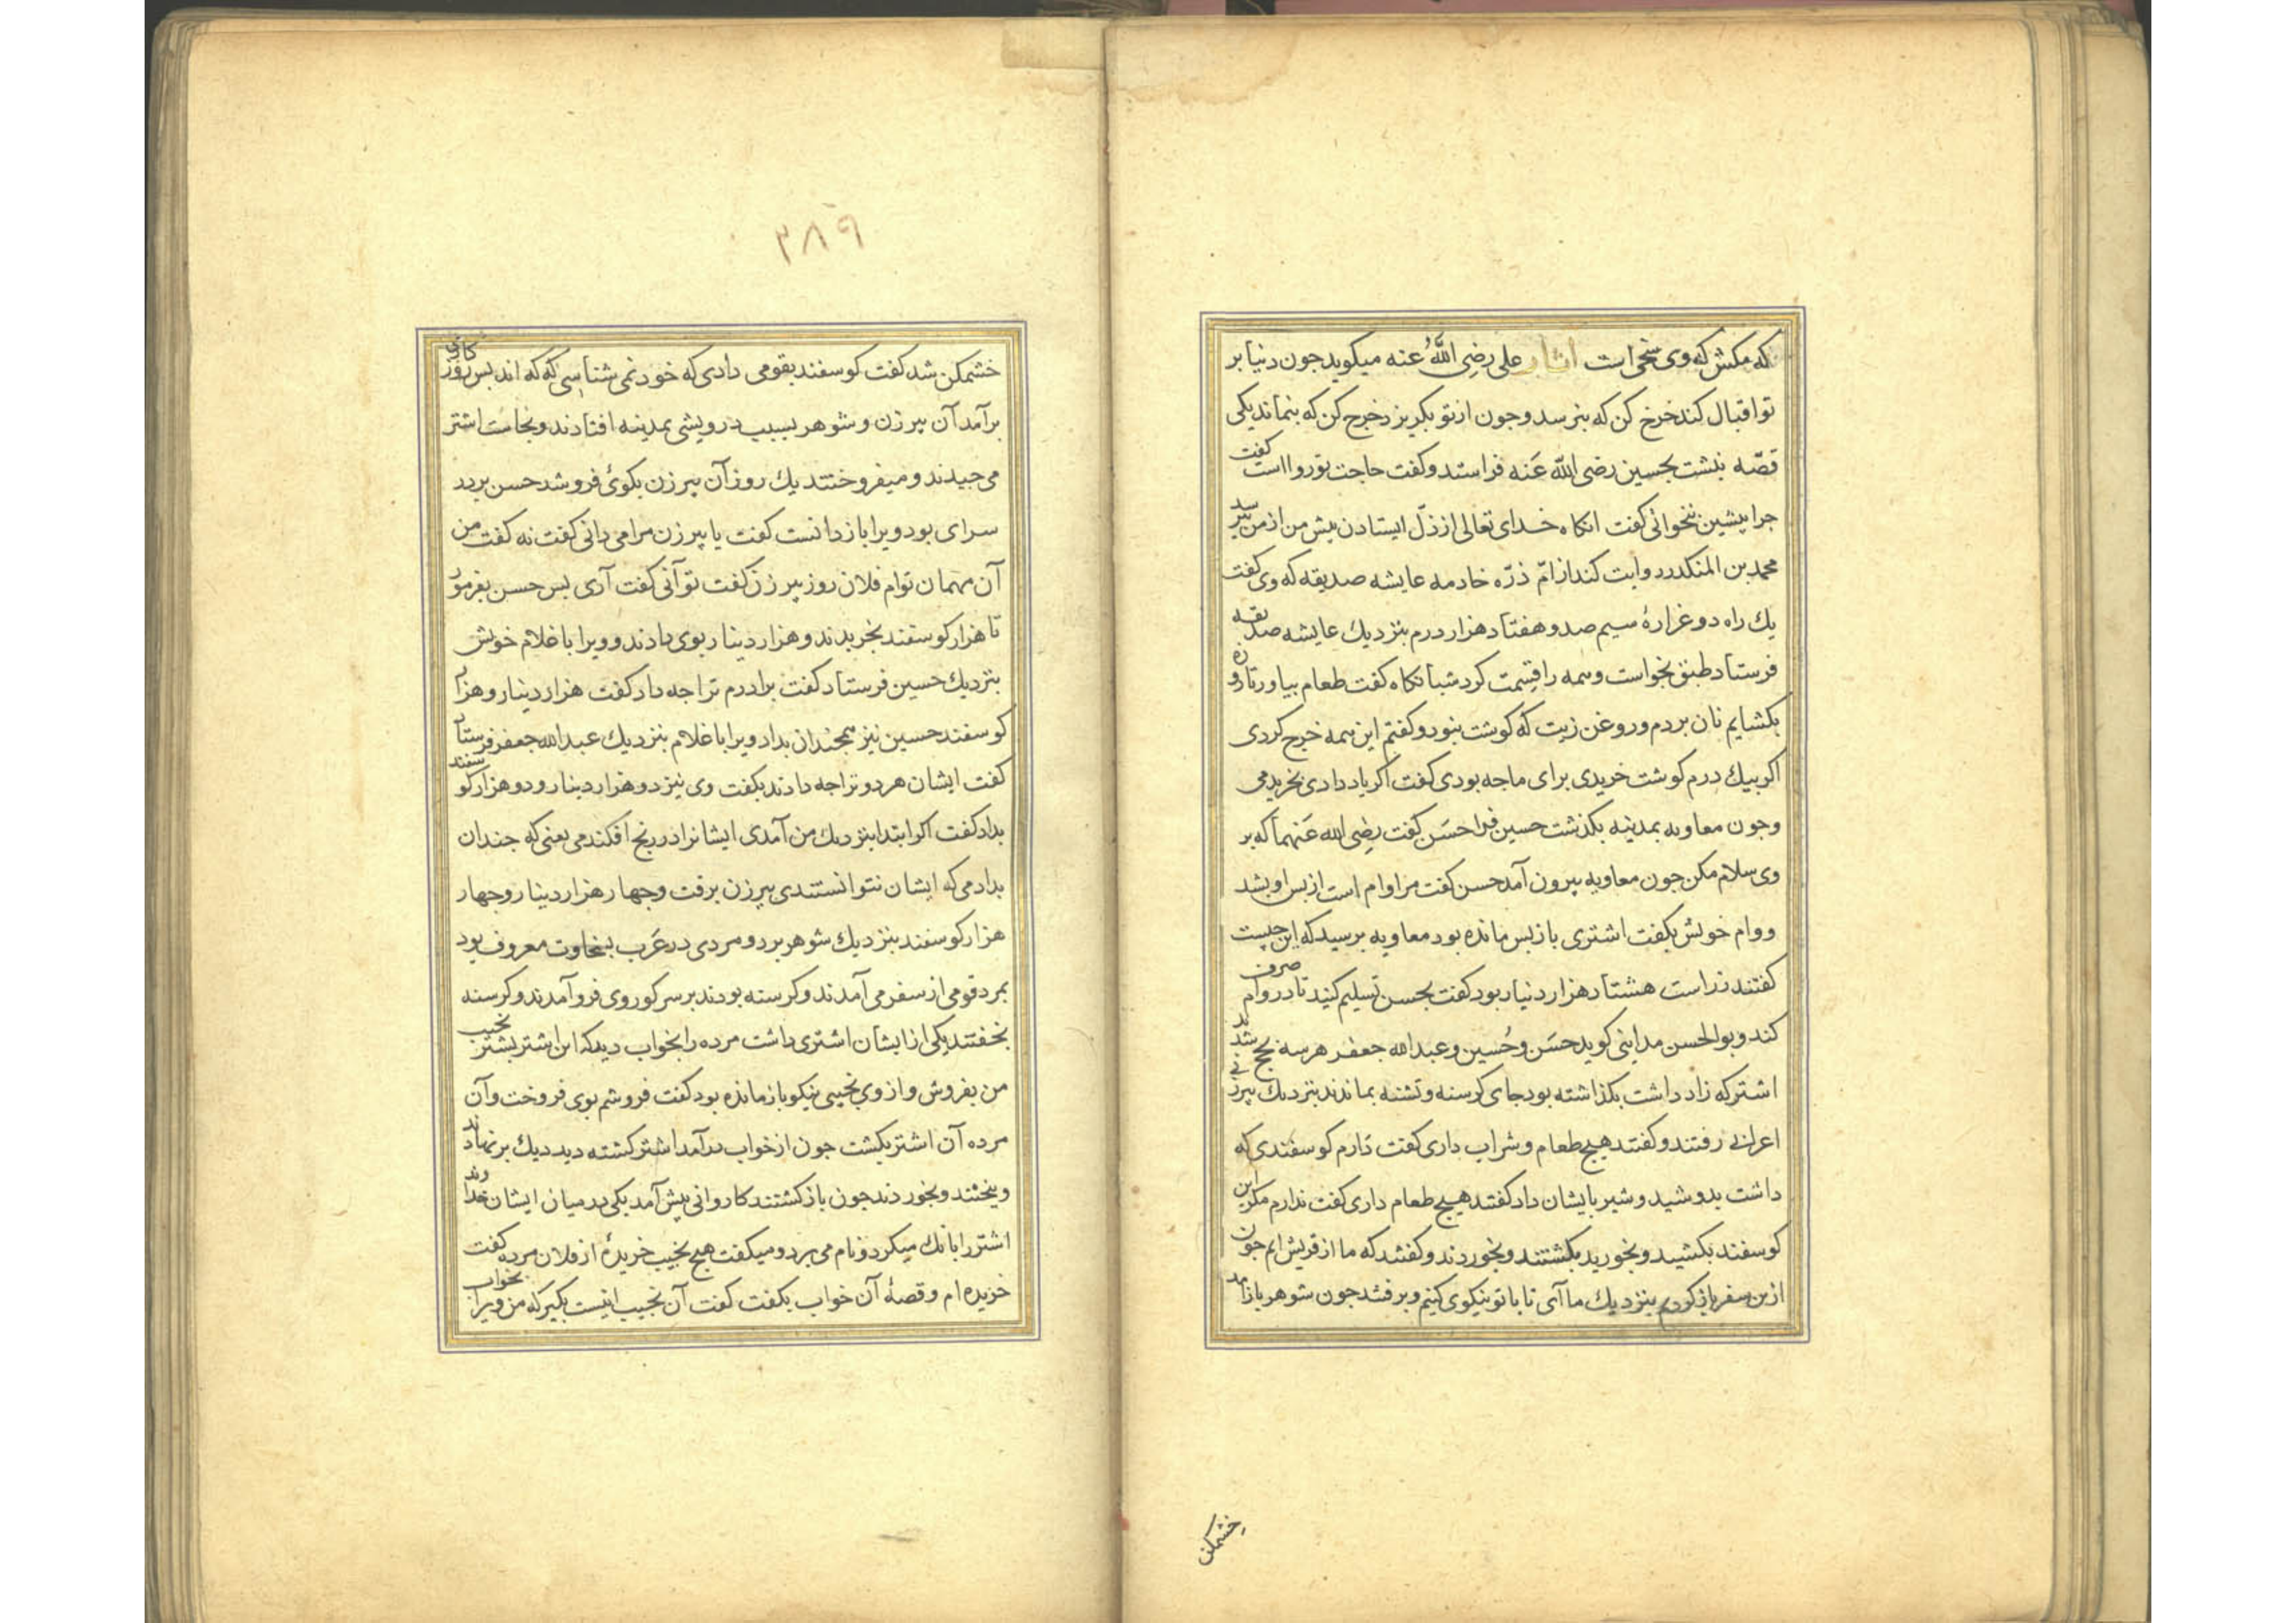 که مکش که وی سخی است آثار علی رضی اللهُ عنه میکوید جون دنیا بر
تو اقبال کند خرخ کن که بنرسد و جون از تو بکریزد خرج کن که بنماند یکی
قصّه نبشت بحسین رضی الله عَنه فراستد و کفت حاجت تو روا است کفت
جرا پیشین نخوانی کفت انکاه خدای تعالی از ذلّ ایستادن پیش من از من پرسد
محمد بن المنکدر روایت کند از امّ ذرّه خادمه عایشه صدیقه که وی کفت
یك راه دو غرارهٔ سیم صد و هفتاد هزار درم بنزدیك عایشه صدیقه
فرستاد طبق بخواست و همه را قسمت کرد شبانکاه کفت طعام بیاور تا روزه
بکشایم نان بردم و روغن زیت که کوشت بنود و کفتم این همه خرج کردی
اکر بیك درم کوشت خریدی برای ما جه بودی کفت اکر یاد دادی بخریدمی
وجون معاویه بمدینه بکذشت حسین فرا حسَن کفت رضی الله عَنهما که بر
وی سلام مکن جون معاویه بیرون آمد حسن کفت مرا وام است از بس او بشد
و وام خویش بکفت اشتری باز بس مانده بود معاویه برسید که این جیست
کفتند زر است هشتاد هزار دنیار بود کفت بحسن تسلیم کنید تا در وام صرف
کند و بوالحسن مداینی کوید حسَن و حُسین و عبدالله جعفر هر سه بحج شدند
اشتر که زاد داشت بکذاشته بود جای کرسنه و تشنه بماندند بنزدیك پیرزنی
اعرابی رفتند و کفتند هیج طعام و شراب داری کفت دارم کوسفندی که
داشت بدوشید و شیر بایشان داد کفتند هیج طعام داری کفت ندارم مکر این
کوسفند بکشید و بخورید بکشتند و بخوردند و کفتند که ما از قریش ایم جون
ازین سفر باز کردیم بنزدیك ما آی تا با تو نیکوی کنیم و برفتند جون شوهر باز آمد
خشمکن
٣٨٩
خشمکن شد کفت کوسفند بقومی دادی که خود نمی شناسی که که اند بس روزکاری
برآمد آن پیرزن و شوهر بسبب درویشی بمدینه افتادند و نجاست اشتر
می جیدند و میفروختند یك روز آن پیرزن بکوئ فروشد حسن بر در
سرای بود ویرا باز دانست کفت یا پیرزن مرا می دانی کفت نه کفت من
آن مهمان توام فلان روز پیرزن کفت تو آنی کفت آری بس حسن بفرمود
تا هزار کوسفند بخریدند و هزار دینار بوی دادند و ویرا با غلام خویش
بنزدیك حسین فرستاد کفت برادرم ترا جه داد کفت هزار دینار و هزار
کوسفند حسین نیز همجندان بداد ویرا با غلام بنزدیك عبدالله جعفر فرستاد
کفت ایشان هر دو ترا جه دادند بکفت وی نیز دو هزار دینار و دو هزار کوسفند
بداد کفت اکر ابتدا بنزدیك من آمدی ایشانرا در رنج افکندمی یعنی که جندان
بدادمی که ایشان نتوانستندی پیرزن برفت و جهار هزار دینار و جهار
هزار کوسفند بنزدیك شوهر برد و مردی در عَرب بسخاوت معروف بود
بمرد قومی از سفر می آمدند و کرسنه بودند بر سر کور وی فرو آمدند و کرسنه
بخفتند یکی از ایشان اشتری داشت مرده را بخواب دید که این اشتر بشتر نجیب
من بفروش و از وی نجیبی نیکو باز مانده بود کفت فروشم بوی فروخت و آن
مرده آن اشتر بکشت جون از خواب درآمد اشتر کشته دید دیك بر نهادند
و پختند و بخوردند جون باز کشتند کاروانی پیش آمد یکی در میان ایشان خداوند
اشتر را بانك میکرد و نام می برد و میکفت هیج نجیب خریدهٔ از فلان مرده کفت
خریده ام و قصهٔ آن خواب بکفت کفت آن نجیب اینست بکیر که من ویرا بخواب